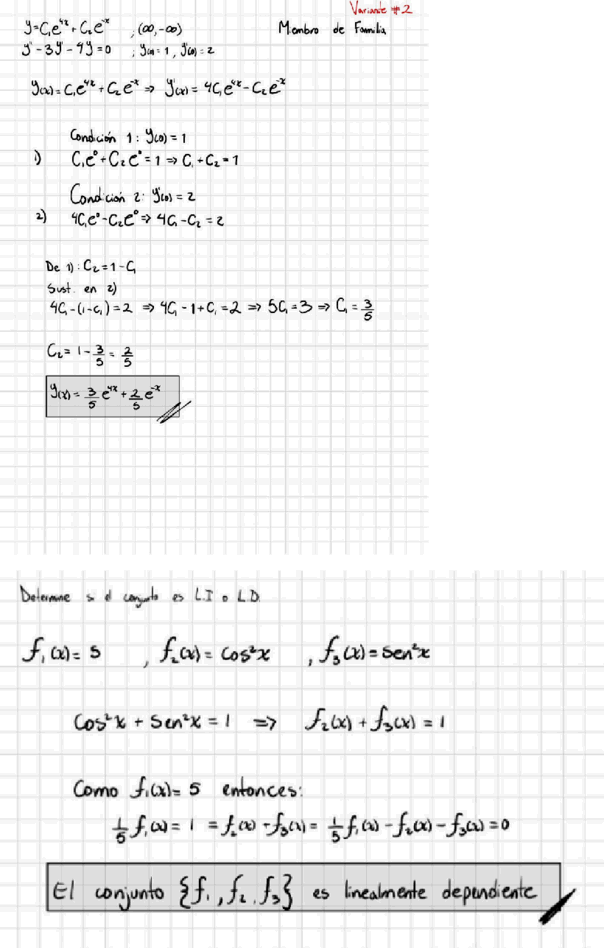 Variante #2
y=C₁e⁴ˣ+C₂e⁻ˣ , (∞,-∞) Miembro de Familia
y''-3y'-4y=0 ; y(0)=1, y'(0)=2
y(x)=C₁e⁴ˣ+C₂e⁻ˣ ⇒ y'(x)=4C₁e⁴ˣ-C₂e⁻ˣ
Condición 1: y(0)=1
1) C₁e⁰+C₂e⁰=1⇒C₁+C₂=1
Condición 2: y'(0)=2
2) 4C₁e⁰-C₂e⁰⇒4C₁-C₂=2
De 1): C₂=1-C₁
Sust. en 2)
4C₁-(1-C₁)=2 ⇒ 4C₁-1+C₁=2 ⇒ 5C₁=3 ⇒ C₁=3/5
C₂=1-3/5=2/5
y(x)=3/5 e⁴ˣ+2/5 e⁻ˣ
Determine si el conjunto es L.I o L.D.
f₁(x)=5 , f₂(x)=cos²x , f₃(x)=sen²x
cos²x+sen²x=1 ⇒ f₂(x)+f₃(x)=1
Como f₁(x)=5 entonces:
1/5 f₁(x)=1=f₂(x)+f₃(x)=1/5 f₁(x)-f₂(x)-f₃(x)=0
El conjunto {f₁, f₂, f₃} es linealmente dependiente